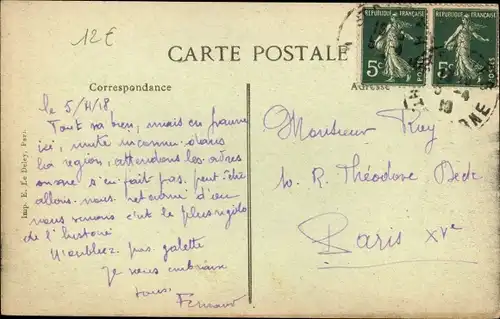 12 €
RÉPUBLIQUE FRANÇAISE
5c
POSTES
RÉPUBLIQUE FRANÇAISE
5c
POSTES
CARTE POSTALE
Correspondance
Adresse
le 5/4/18
Tout va bien, mais en panne
ici, unité inconnue dans
la région, attendons les
s'en fait pas. peut être
allons nous d'où
nous venons c'est le plus rigolo
de l'histoire
N'oubliez pas galette
Je vous embrasse
tous. Fernand
Monsieur Rey
R. Théodore Deck
Paris XVe
Imp. E. Le Deley, Paris.